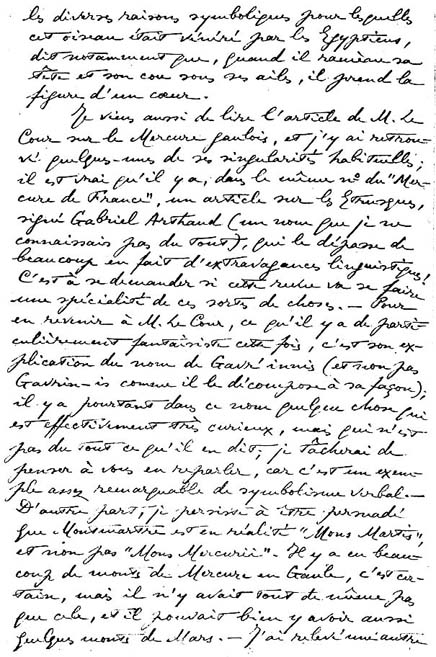 les diverses raisons symboliques pour lesquelles
cet oiseau était vénéré par les Égyptiens,
dit notamment que, quand il ramène sa
tête et son cou sous ses ailes, il prend la
figure d'un cœur.
Je viens aussi de lire l'article de M. Le
Cour sur le Mercure gaulois, et j'y ai retrou-
vé quelques-unes de ses singularités habituelles;
il est vrai qu'il y a, dans le même nº du "Mer-
cure de France", un article sur les Étrusques,
signé Gabriel Arthaud (un nom que je ne
connaissais pas du tout), qui le dépasse de
beaucoup en fait d'extravagances linguistiques!
C'est à se demander si cette revue va se faire
une spécialité de ces sortes de choses. — Pour
en revenir à M. Le Cour, ce qu'il y a de parti-
culièrement fantaisiste cette fois, c'est son ex-
plication du nom de Gavr'innis (et non pas
Gavrin-is comme il le décompose à sa façon);
il y a pourtant dans ce nom quelque chose qui
est effectivement très curieux, mais qui n'est
pas du tout ce qu'il en dit; je tâcherai de
penser à vous en reparler, car c'est un exem-
ple assez remarquable de symbolisme verbal. —
D'autre part, je persiste à être persuadé
que Montmartre est en réalité "Mons Martis",
et non pas "Mons Mercurii". Il y a eu beau-
coup de monts de Mercure en Gaule, c'est cer-
tain, mais il n'y avait tout de même pas
que cela, et il pouvait bien y avoir aussi
quelques monts de Mars. — J'ai relevé une autre